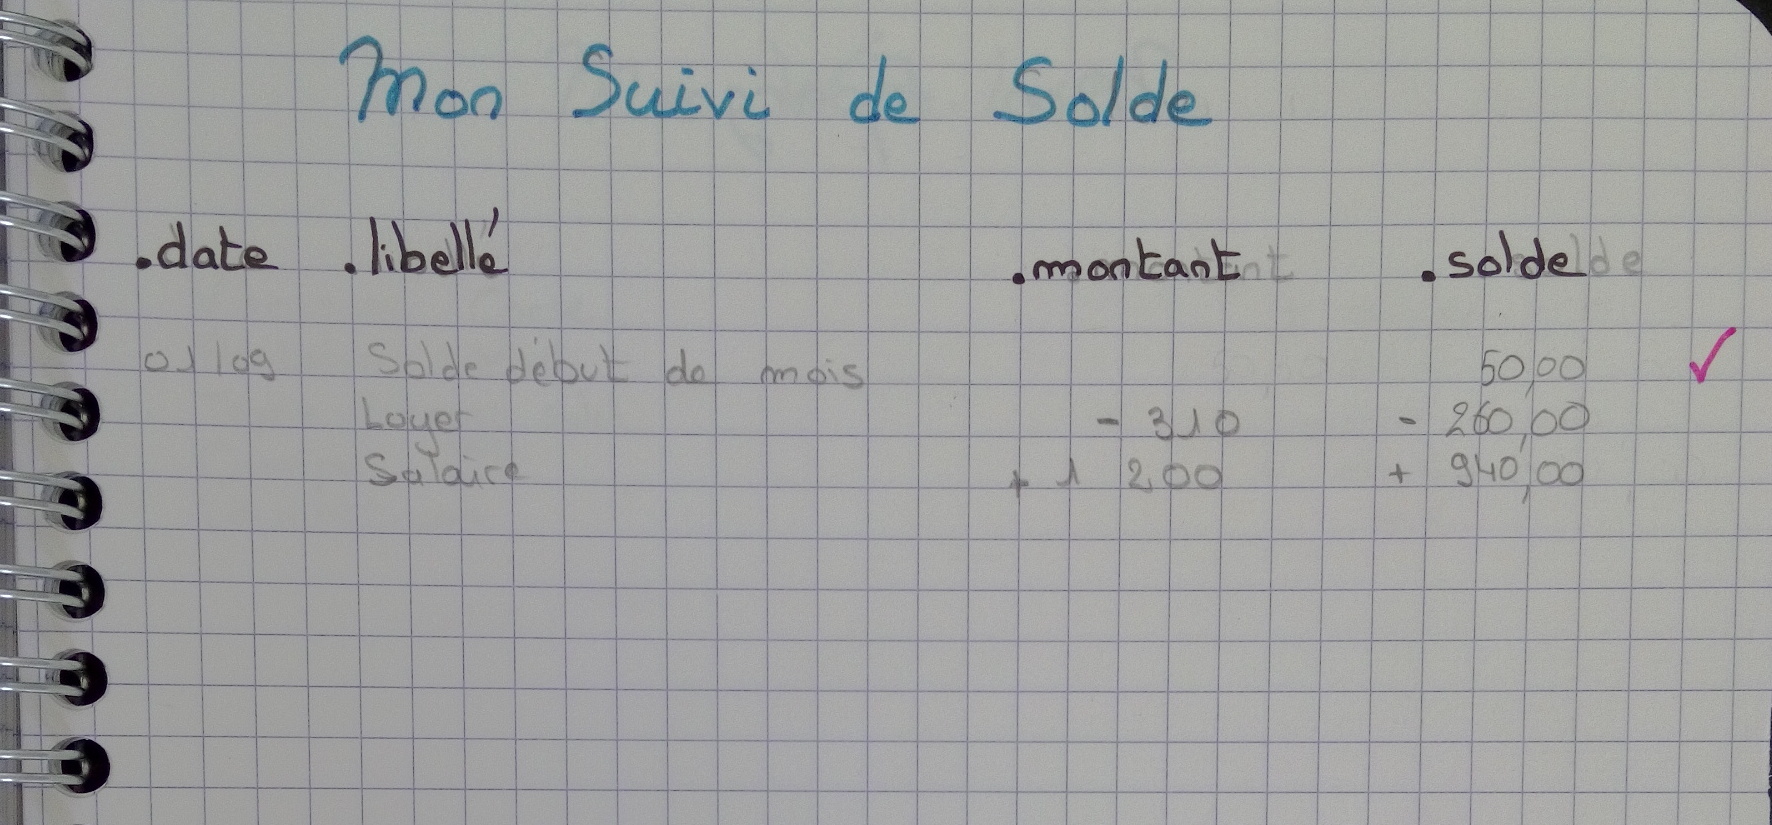 Mon Suivi de Solde
.date .libellé .montant .solde
01/09 Solde début de mois 50,00 ✓
Loyer - 310 - 260,00
Salaire + 1 200 + 940,00